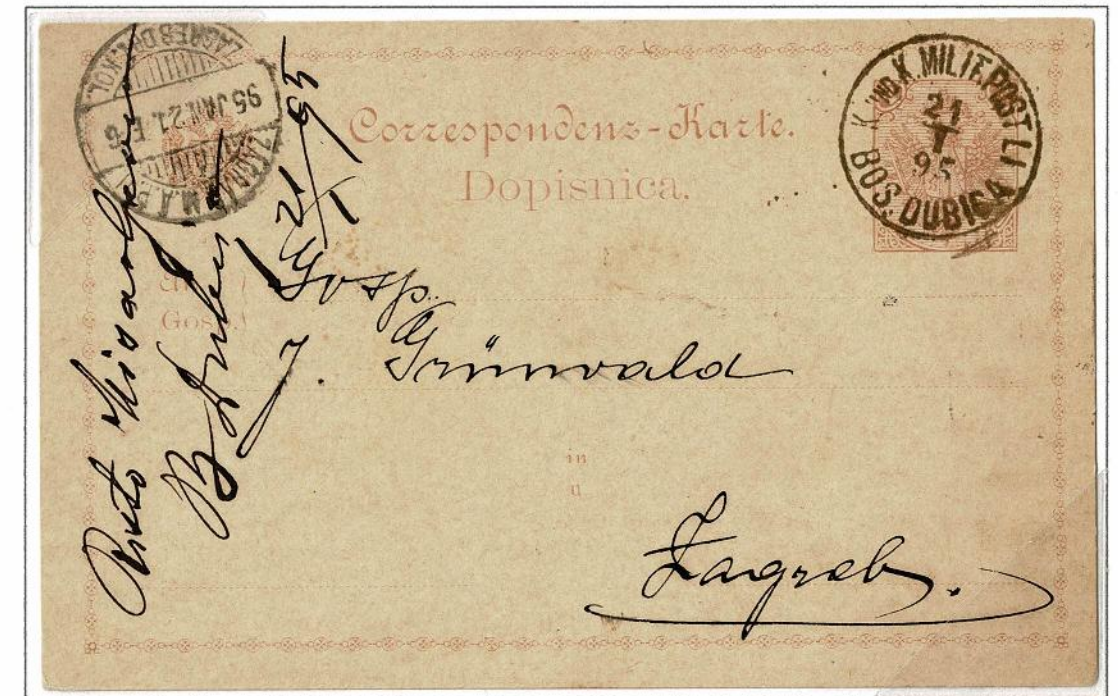 Correspondenz-Karte.
Dopisnica.
K. UND K. MILIT. POST LI
21
I
95
BOS. DUBICA
ZAGREB
95 JAN. 21. E 6
ZAGRAB
21/1 95
Gosp.
Gosp.
J. Grünwald
in
u
Zagreb.
Risto
B Dubica